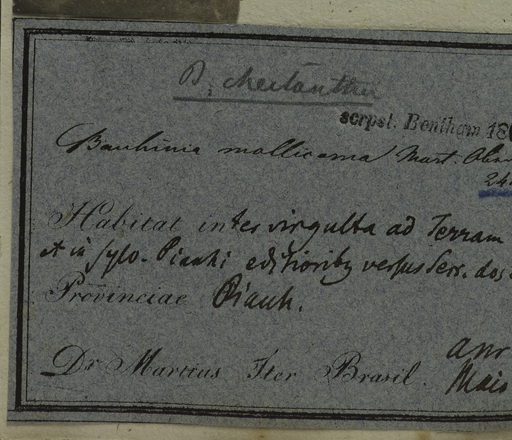 B. cheilantha
scrpst. Bentham 18
Bauhinia mollicoma Mart. Obs
24
Habitat inter virgulta ad Terram
et in sylv. Piauh: editioribg versus Serr. dos
Provinciae Piauh.
Dr Martius Iter Brasil. ann
Maio